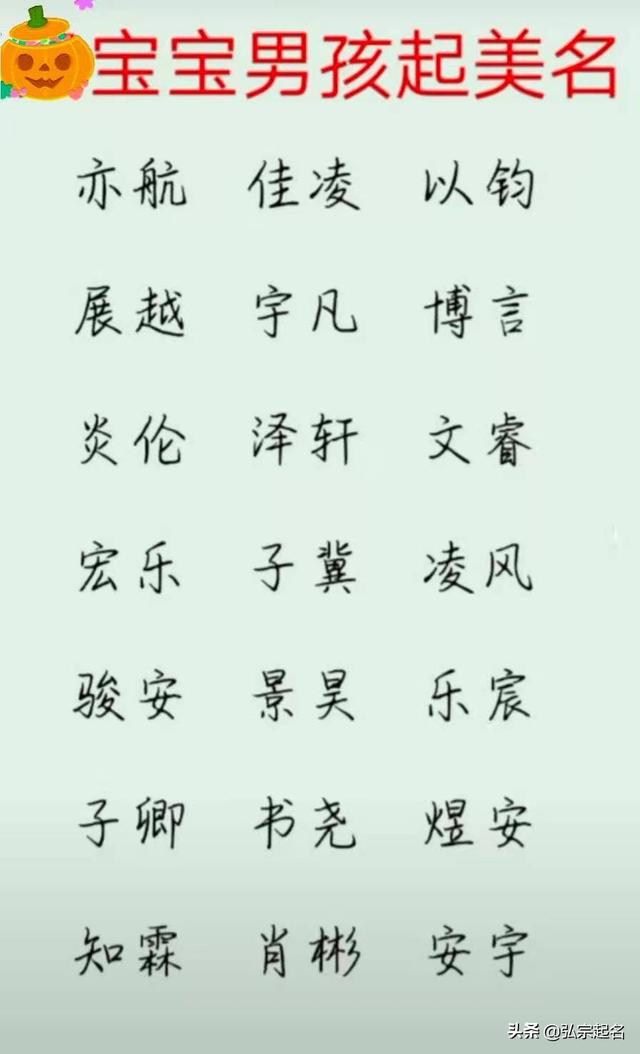 宝宝男孩起美名
亦航 佳凌 以钧
展越 宇凡 博言
炎伦 泽轩 文睿
宏乐 子冀 凌风
骏安 景昊 乐宸
子卿 书尧 煜安
知霖 肖彬 安宇
头条 @弘宗起名